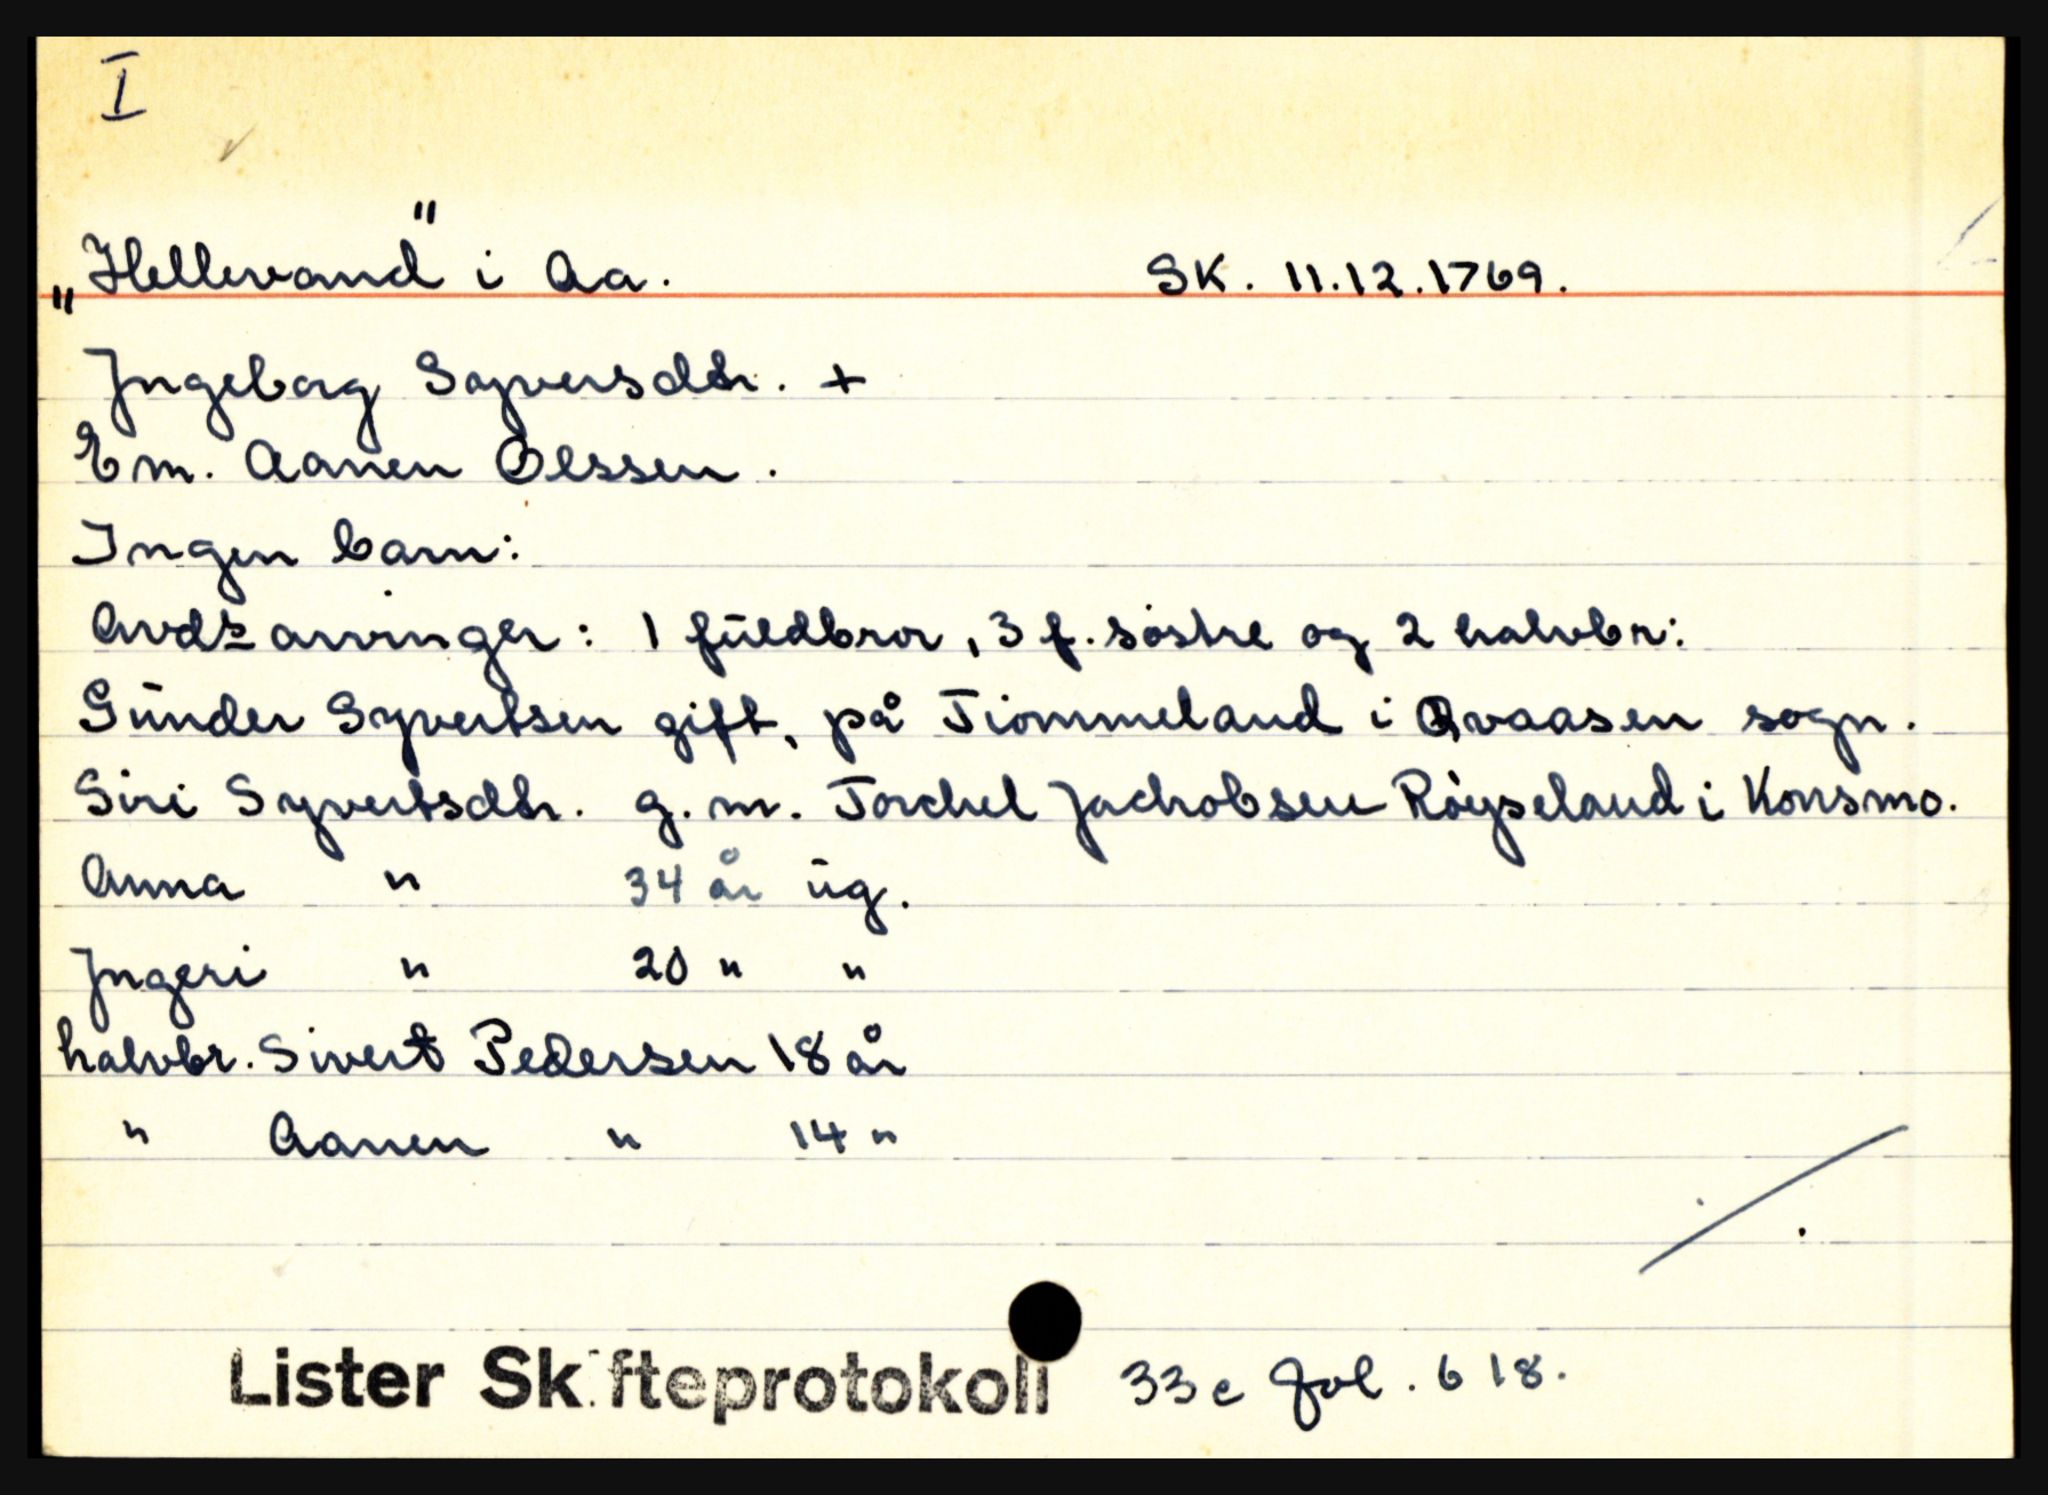 I
"Hellevand" i Aa. SK. 11.12.1769.
Jngeborg Syversdtr. +
Em. Aanen Olssen.
Ingen barn:
Avds arvinger: 1 fuldbror, 3 f. søstre og 2 halvbr:
Gunder Syvertsen gift, på Tiommeland i Qvaasen sogn.
Siri Syvertsdtr. g. m. Torchel Jachobsen Røyseland i Konsmo.
Anna " 34 år ug.
Jngeri " 20 " "
halvbr. Sivert Pedersen 18 år
" Aanen " 14 "
Lister Skifteprotokoll 33c fol. 618.